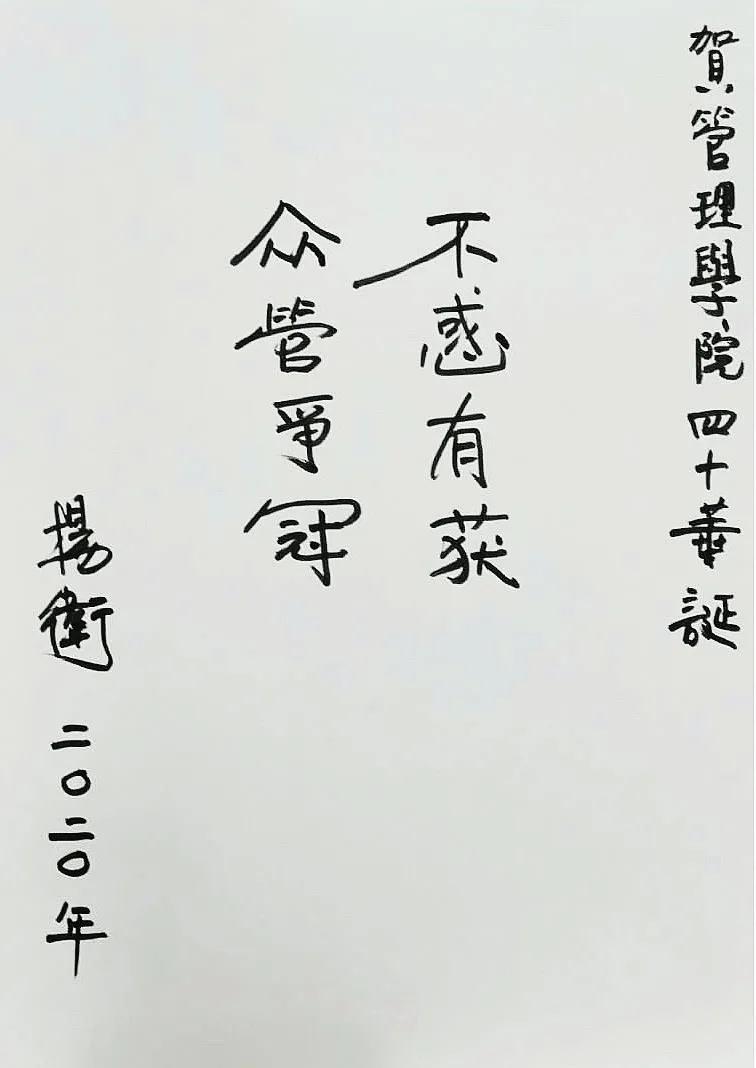 賀管理學院四十華誕
不惑有获
众管爭冠
楊衛 二〇二〇年